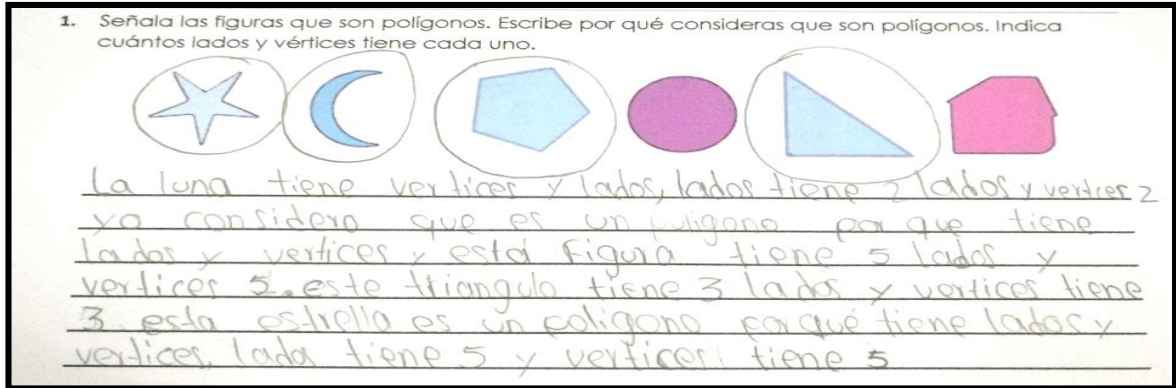 1. Señala las figuras que son polígonos. Escribe por qué consideras que son polígonos. Indica
cuántos lados y vértices tiene cada uno.
La luna tiene vertices y lados, lados tiene 2 lados y vertices 2
yo considero que es un puligono por que tiene
lados y vertices y esta figura tiene 5 lados y
vertices 5. este triangulo tiene 3 lados y vertices tiene
3 esta estrella es un poligono por qué tiene lados y
vertices, lados tiene 5 y vertices tiene 5